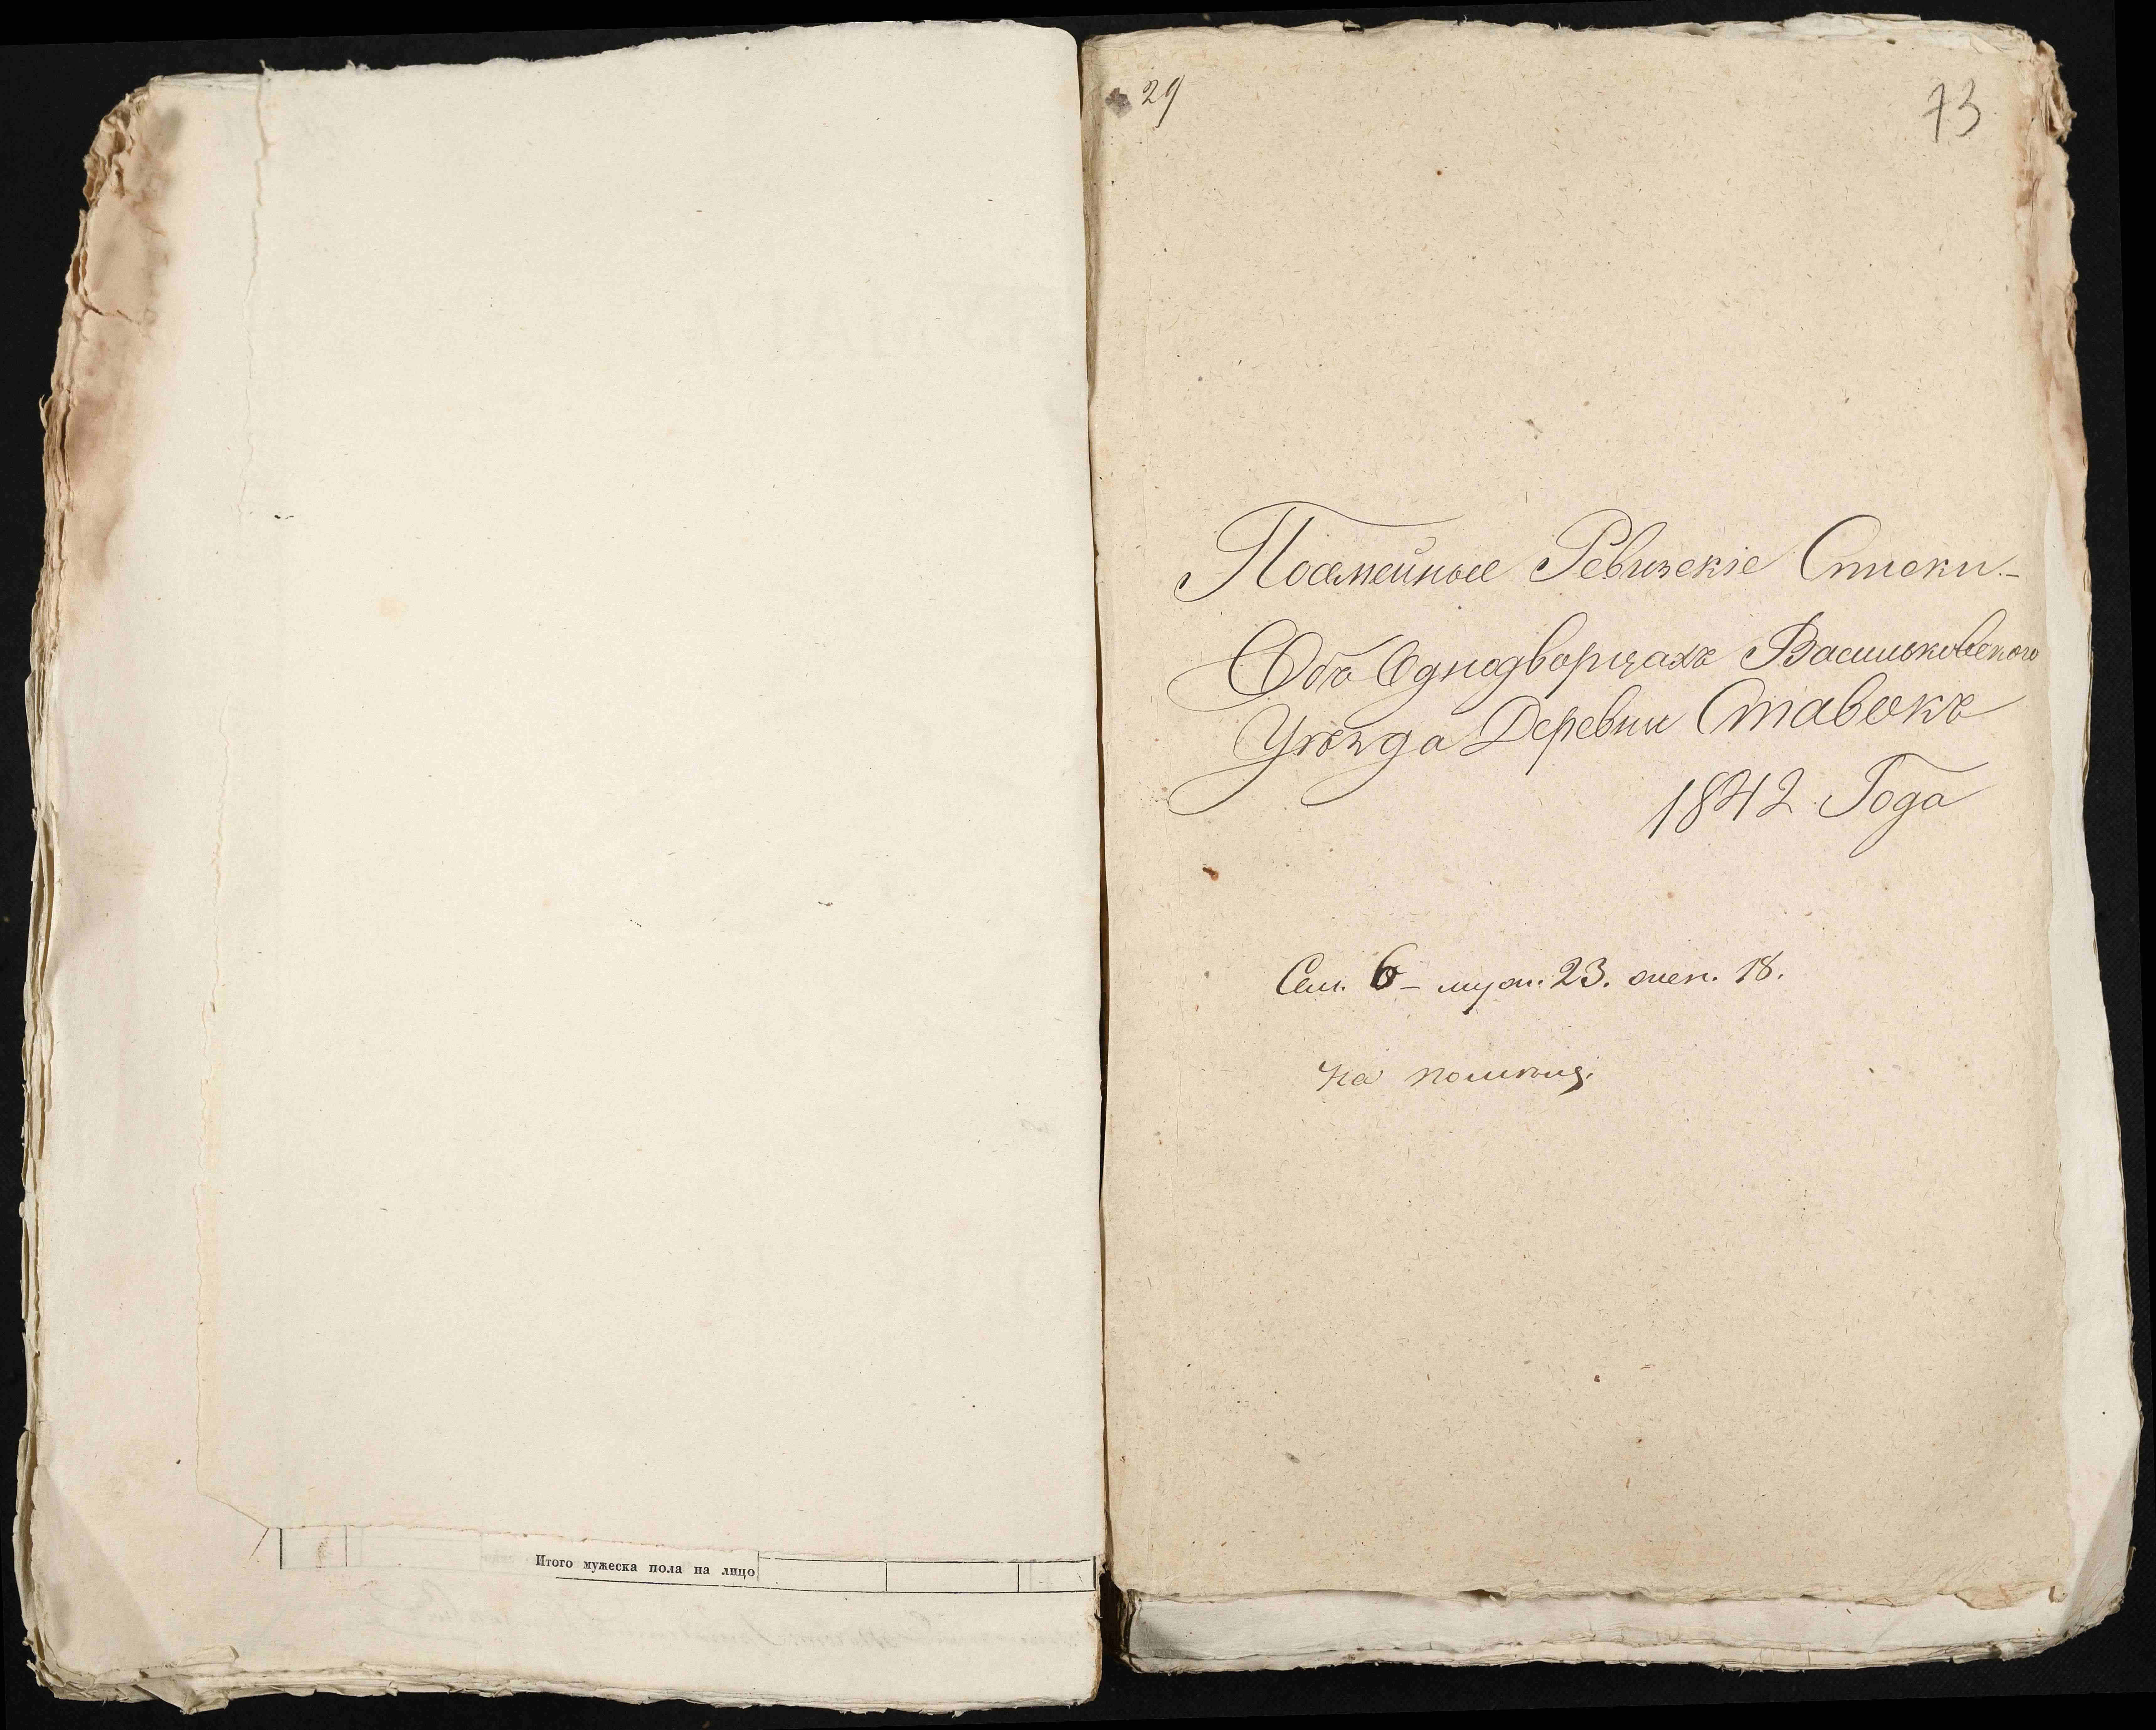 Итого мужеска пола на лицо
29
73
Посемейные Ревизскіе Списки
Объ Однодворцахъ Васильковского
Уѣзда Деревни Ставокъ
1842 Года
Сем. 6 – муж. 23. жен. 18.
на помѣщ.